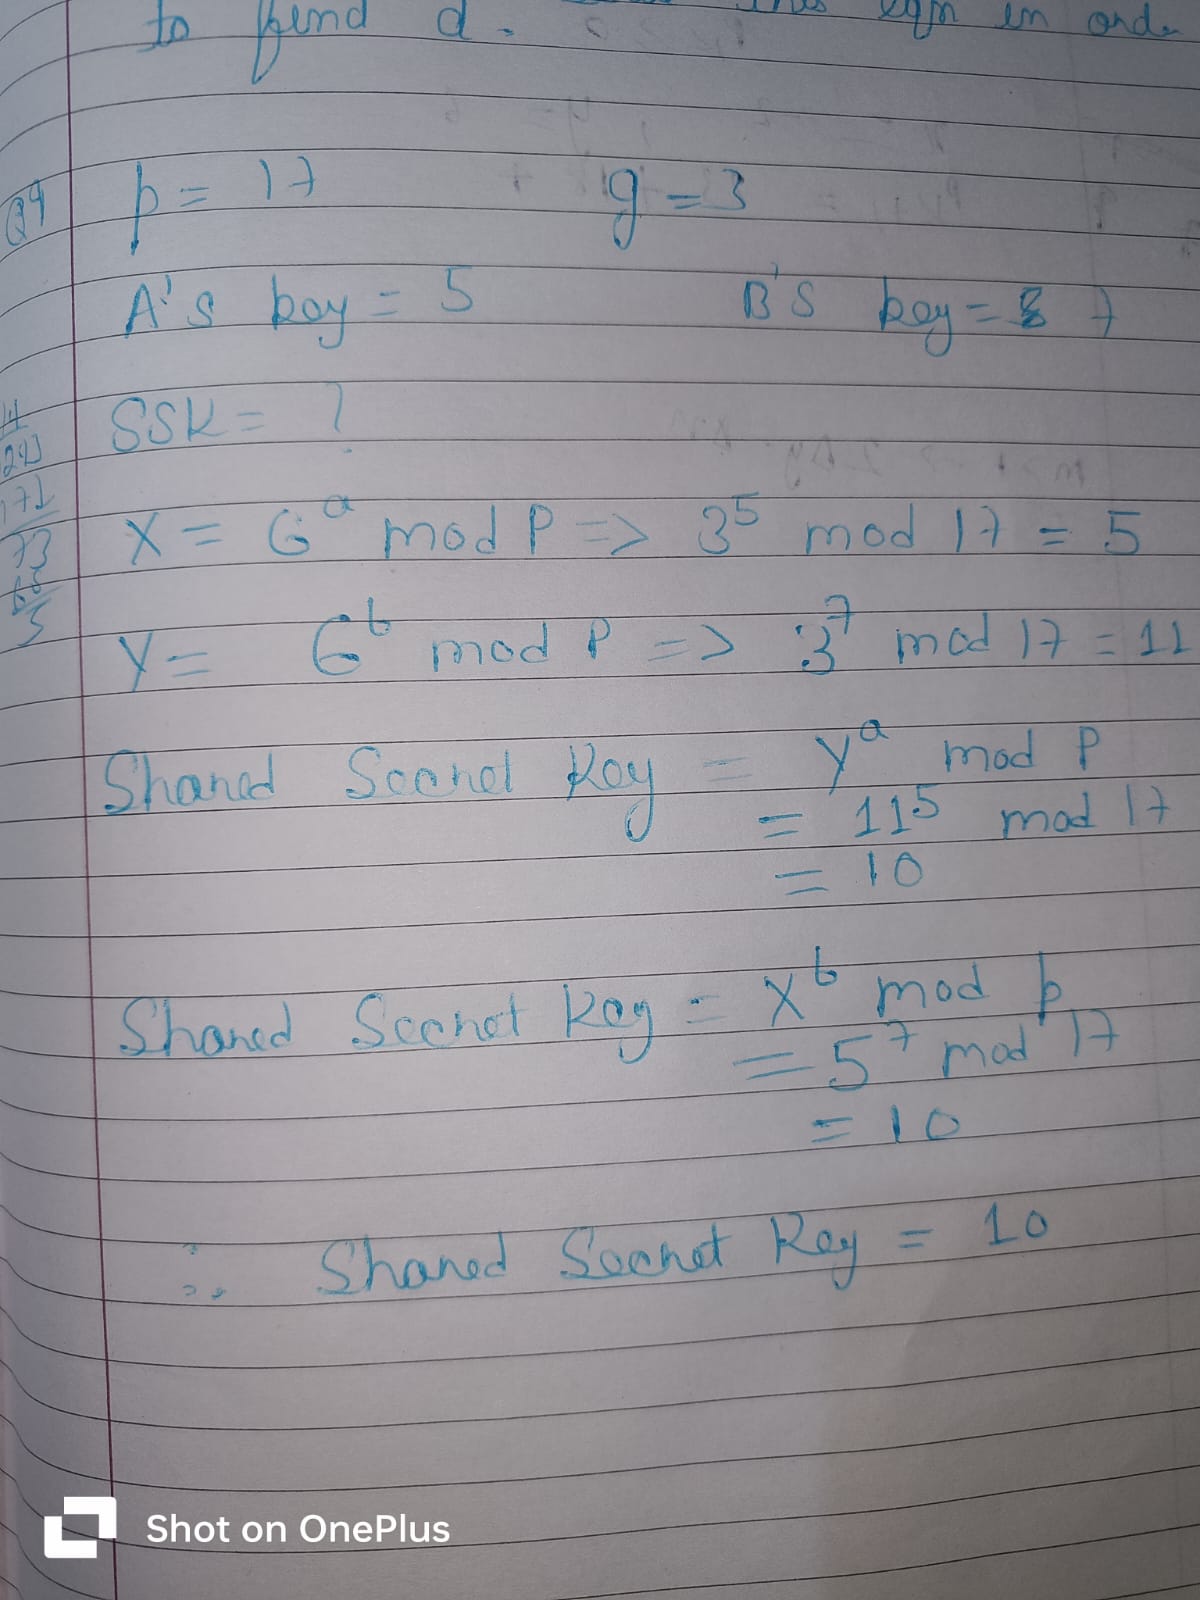 to find d. this eqn in orde
Q4 p = 17 g = 3
A's key = 5 B's key = 7
SSK = ?
X = G^a mod P => 3^5 mod 17 = 5
Y = G^b mod P => 3^7 mod 17 = 11
Shared Secret Key = Y^a mod P
= 11^5 mod 17
= 10
Shared Secret Key = X^b mod p
= 5^7 mod 17
= 10
∴ Shared Secret Key = 10
Shot on OnePlus